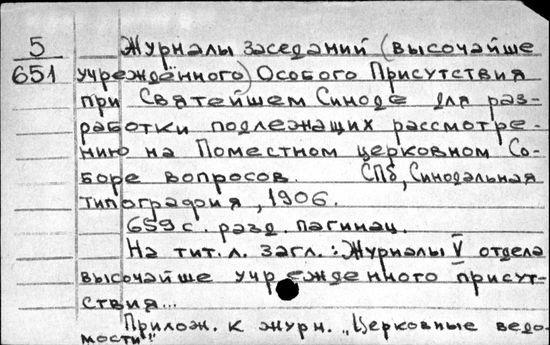 5
651
Журналы заседаний (высочайше
учреждённого) Особого Присутствия
при Святейшем Синоде для раз-
работки подлежащих рассмотре-
нию на Поместном церковном Со-
боре вопросов. СПб, Синодальная
типография, 1906.
659 с. разд. пагинац.
На тит. л. загл.: Журналы V отдела
высочайше учрежденного присут-
ствия...
Прилож. к журн. „Церковные ведо-
мости".